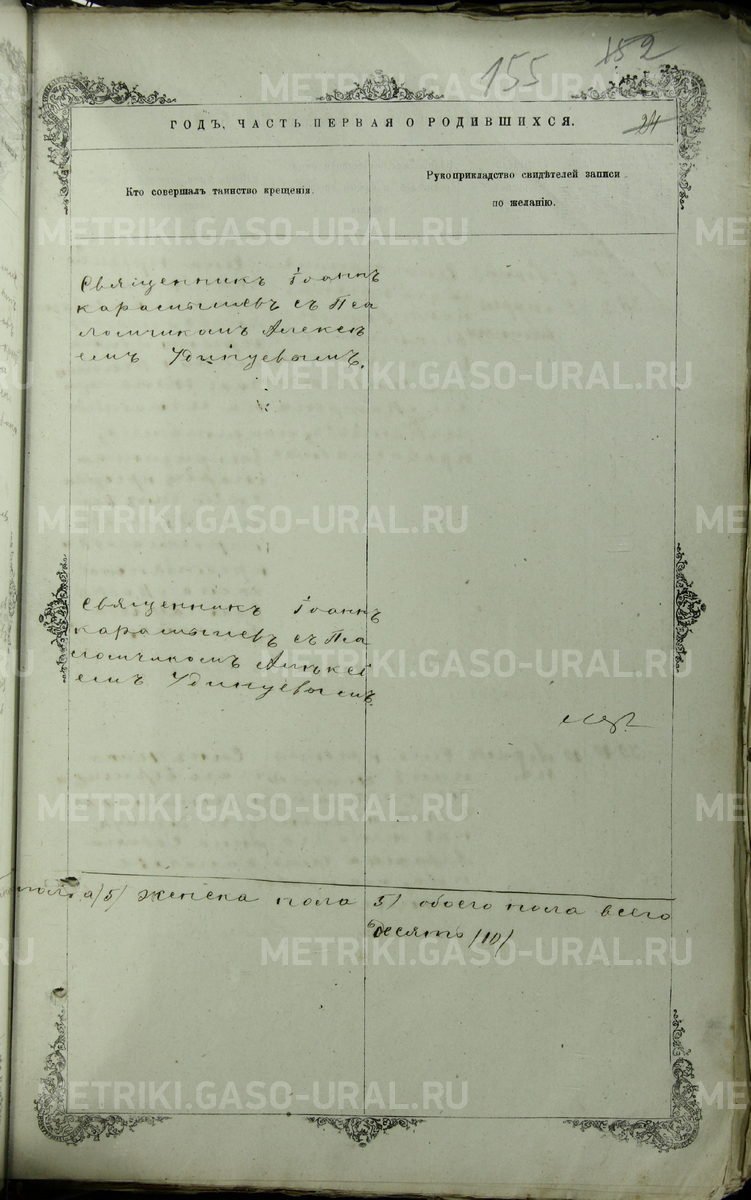 155 152
ГОДЪ, ЧАСТЬ ПЕРВАЯ О РОДИВШИХСЯ.
24
Кто совершалъ таинство крещенія.
Рукоприкладство свидѣтелей записи
по желанію.
Священникъ Іоаннъ
Карамышевъ съ Пса
ломчикомъ Алексѣ
емъ Удинцевымъ.
Священникъ Іоаннъ
Карамышевъ съ Пса
ломчикомъ Алексѣ
емъ Удинцевымъ
пола /5/ женска пола 5/ обоего пола всего
десять /10/
METRIKI.GASO-URAL.RU